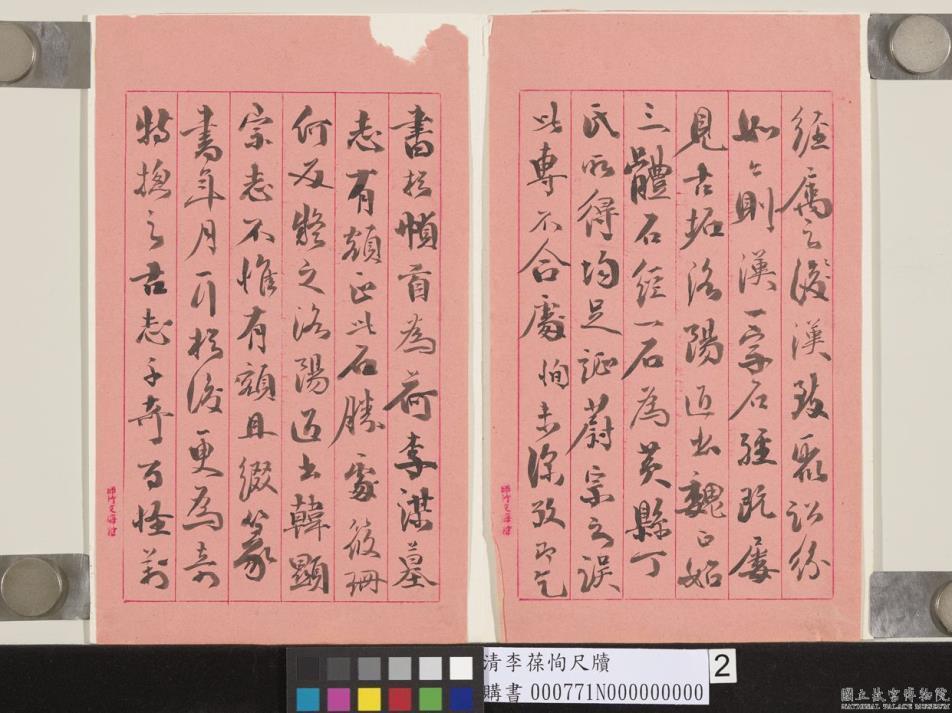 經屬之後漢致聚訟紛
如今則漢一字石經既屢
見古拓洛陽近出魏正始
三體石經一石為黃縣丁
氏所得均足證蔚宗之誤
此專不合處恂未深攷即乞
書於幀首為荷李謀墓
志有額正此石勝處筱珊
何反疑之洛陽近出韓顯
宗志不惟有額且綴篆
書年月一行於後更為奇
特搃之古志千奇百怪若
清李葆恂尺牘
購書 000771N000000000
2
國立故宮博物院
NATIONAL PALACE MUSEUM